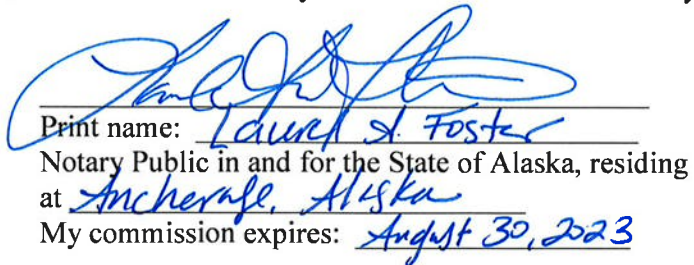 Print name: Laurel A. Foster
Notary Public in and for the State of Alaska, residing
at Anchorage, Alaska
My commission expires: August 30, 2023